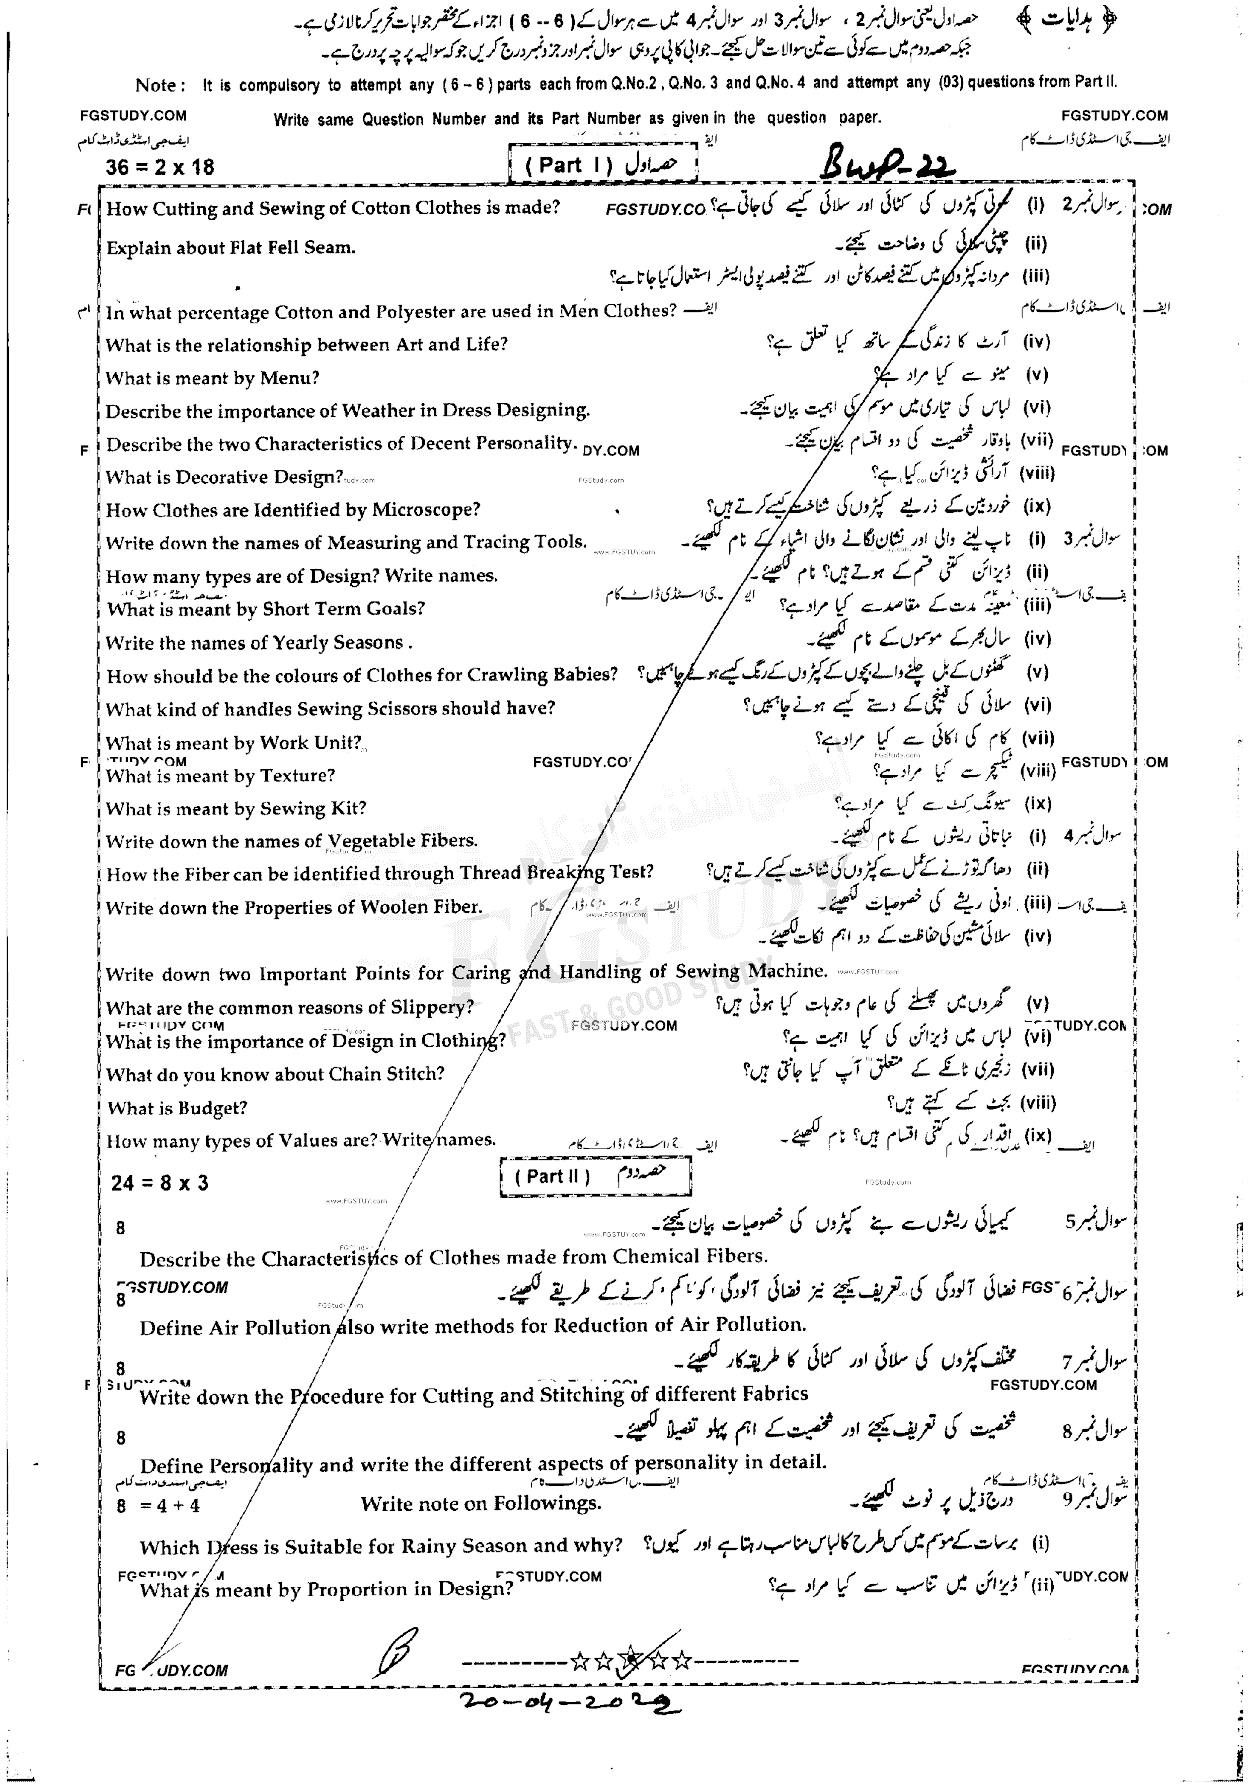 ﴿ ہدایات ﴾ حصہ اول یعنی سوال نمبر 2 ، سوال نمبر 3 اور سوال نمبر 4 میں سے ہر سوال کے ( 6 -- 6 ) اجزاء کے مختصر جوابات تحریر کرنا لازمی ہے۔
جبکہ حصہ دوم میں سے کوئی سے تین سوالات حل کیجئے۔ جوابی کاپی پر وہی سوال نمبر اور جزو نمبر درج کریں جو کہ سوالیہ پرچہ پر درج ہے۔
Note : It is compulsory to attempt any ( 6 – 6 ) parts each from Q.No.2 , Q.No. 3 and Q.No. 4 and attempt any (03) questions from Part II.
FGSTUDY.COM Write same Question Number and its Part Number as given in the question paper. FGSTUDY.COM
ایف جی اسٹڈی ڈاٹ کام
36 = 2 x 18 ( Part I ) حصہ اول BWP-22
How Cutting and Sewing of Cotton Clothes is made? سوتی کپڑوں کی کٹائی اور سلائی کیسے کی جاتی ہے؟ (i) سوال نمبر 2
Explain about Flat Fell Seam. چپٹی سلائی کی وضاحت کیجئے۔ (ii)
مردانہ کپڑوں میں کتنے فیصد کاٹن اور کتنے فیصد پولی ایسٹر استعمال کیا جاتا ہے؟ (iii)
In what percentage Cotton and Polyester are used in Men Clothes?
What is the relationship between Art and Life? آرٹ کا زندگی کے ساتھ کیا تعلق ہے؟ (iv)
What is meant by Menu? مینو سے کیا مراد ہے؟ (v)
Describe the importance of Weather in Dress Designing. لباس کی تیاری میں موسم کی اہمیت بیان کیجئے۔ (vi)
Describe the two Characteristics of Decent Personality. باوقار شخصیت کی دو اقسام بیان کیجئے۔ (vii)
What is Decorative Design? آرائشی ڈیزائن کیا ہے؟ (viii)
How Clothes are Identified by Microscope? خوردبین کے ذریعے کپڑوں کی شناخت کیسے کرتے ہیں؟ (ix)
Write down the names of Measuring and Tracing Tools. ناپ لینے والی اور نشان لگانے والی اشیاء کے نام لکھیئے۔ (i) سوال نمبر 3
How many types are of Design? Write names. ڈیزائن کتنی قسم کے ہوتے ہیں؟ نام لکھیئے۔ (ii)
What is meant by Short Term Goals? معینہ مدت کے مقاصد سے کیا مراد ہے؟ (iii)
Write the names of Yearly Seasons . سال بھر کے موسموں کے نام لکھیئے۔ (iv)
How should be the colours of Clothes for Crawling Babies? گھٹنوں کے بل چلنے والے بچوں کے کپڑوں کے رنگ کیسے ہونے چاہئیں؟ (v)
What kind of handles Sewing Scissors should have? سلائی کی قینچی کے دستے کیسے ہونے چاہئیں؟ (vi)
What is meant by Work Unit? کام کی اکائی سے کیا مراد ہے؟ (vii)
What is meant by Texture? ٹیکسچر سے کیا مراد ہے؟ (viii)
What is meant by Sewing Kit? سیونگ کٹ سے کیا مراد ہے؟ (ix)
Write down the names of Vegetable Fibers. نباتاتی ریشوں کے نام لکھیئے۔ (i) سوال نمبر 4
How the Fiber can be identified through Thread Breaking Test? دھاگہ توڑنے کے عمل سے کپڑوں کی شناخت کیسے کرتے ہیں؟ (ii)
Write down the Properties of Woolen Fiber. اونی ریشے کی خصوصیات لکھیئے۔ (iii)
سلائی مشین کی حفاظت کے دو اہم نکات لکھیئے۔ (iv)
Write down two Important Points for Caring and Handling of Sewing Machine.
What are the common reasons of Slippery? گھروں میں پھسلنے کی عام وجوہات کیا ہوتی ہیں؟ (v)
What is the importance of Design in Clothing? لباس میں ڈیزائن کی کیا اہمیت ہے؟ (vi)
What do you know about Chain Stitch? زنجیری ٹانکے کے متعلق آپ کیا جانتی ہیں؟ (vii)
What is Budget? بجٹ کسے کہتے ہیں؟ (viii)
How many types of Values are? Write names. اقدار کی کتنی اقسام ہیں؟ نام لکھیئے۔ (ix)
24 = 8 x 3 ( Part II ) حصہ دوم
8 کیمیائی ریشوں سے بنے کپڑوں کی خصوصیات بیان کیجئے۔ سوال نمبر 5
Describe the Characteristics of Clothes made from Chemical Fibers.
8 فضائی آلودگی کی تعریف کیجئے نیز فضائی آلودگی کو کم کرنے کے طریقے لکھیئے۔ سوال نمبر 6
Define Air Pollution also write methods for Reduction of Air Pollution.
8 مختلف کپڑوں کی سلائی اور کٹائی کا طریقہ کار لکھیئے۔ سوال نمبر 7
Write down the Procedure for Cutting and Stitching of different Fabrics
8 شخصیت کی تعریف کیجئے اور شخصیت کے اہم پہلو تفصیلاً لکھیئے۔ سوال نمبر 8
Define Personality and write the different aspects of personality in detail.
8 = 4 + 4 Write note on Followings. درج ذیل پر نوٹ لکھیئے۔ سوال نمبر 9
Which Dress is Suitable for Rainy Season and why? برسات کے موسم میں کس طرح کا لباس مناسب رہتا ہے اور کیوں؟ (i)
What is meant by Proportion in Design? ڈیزائن میں تناسب سے کیا مراد ہے؟ (ii)
20-04-2022